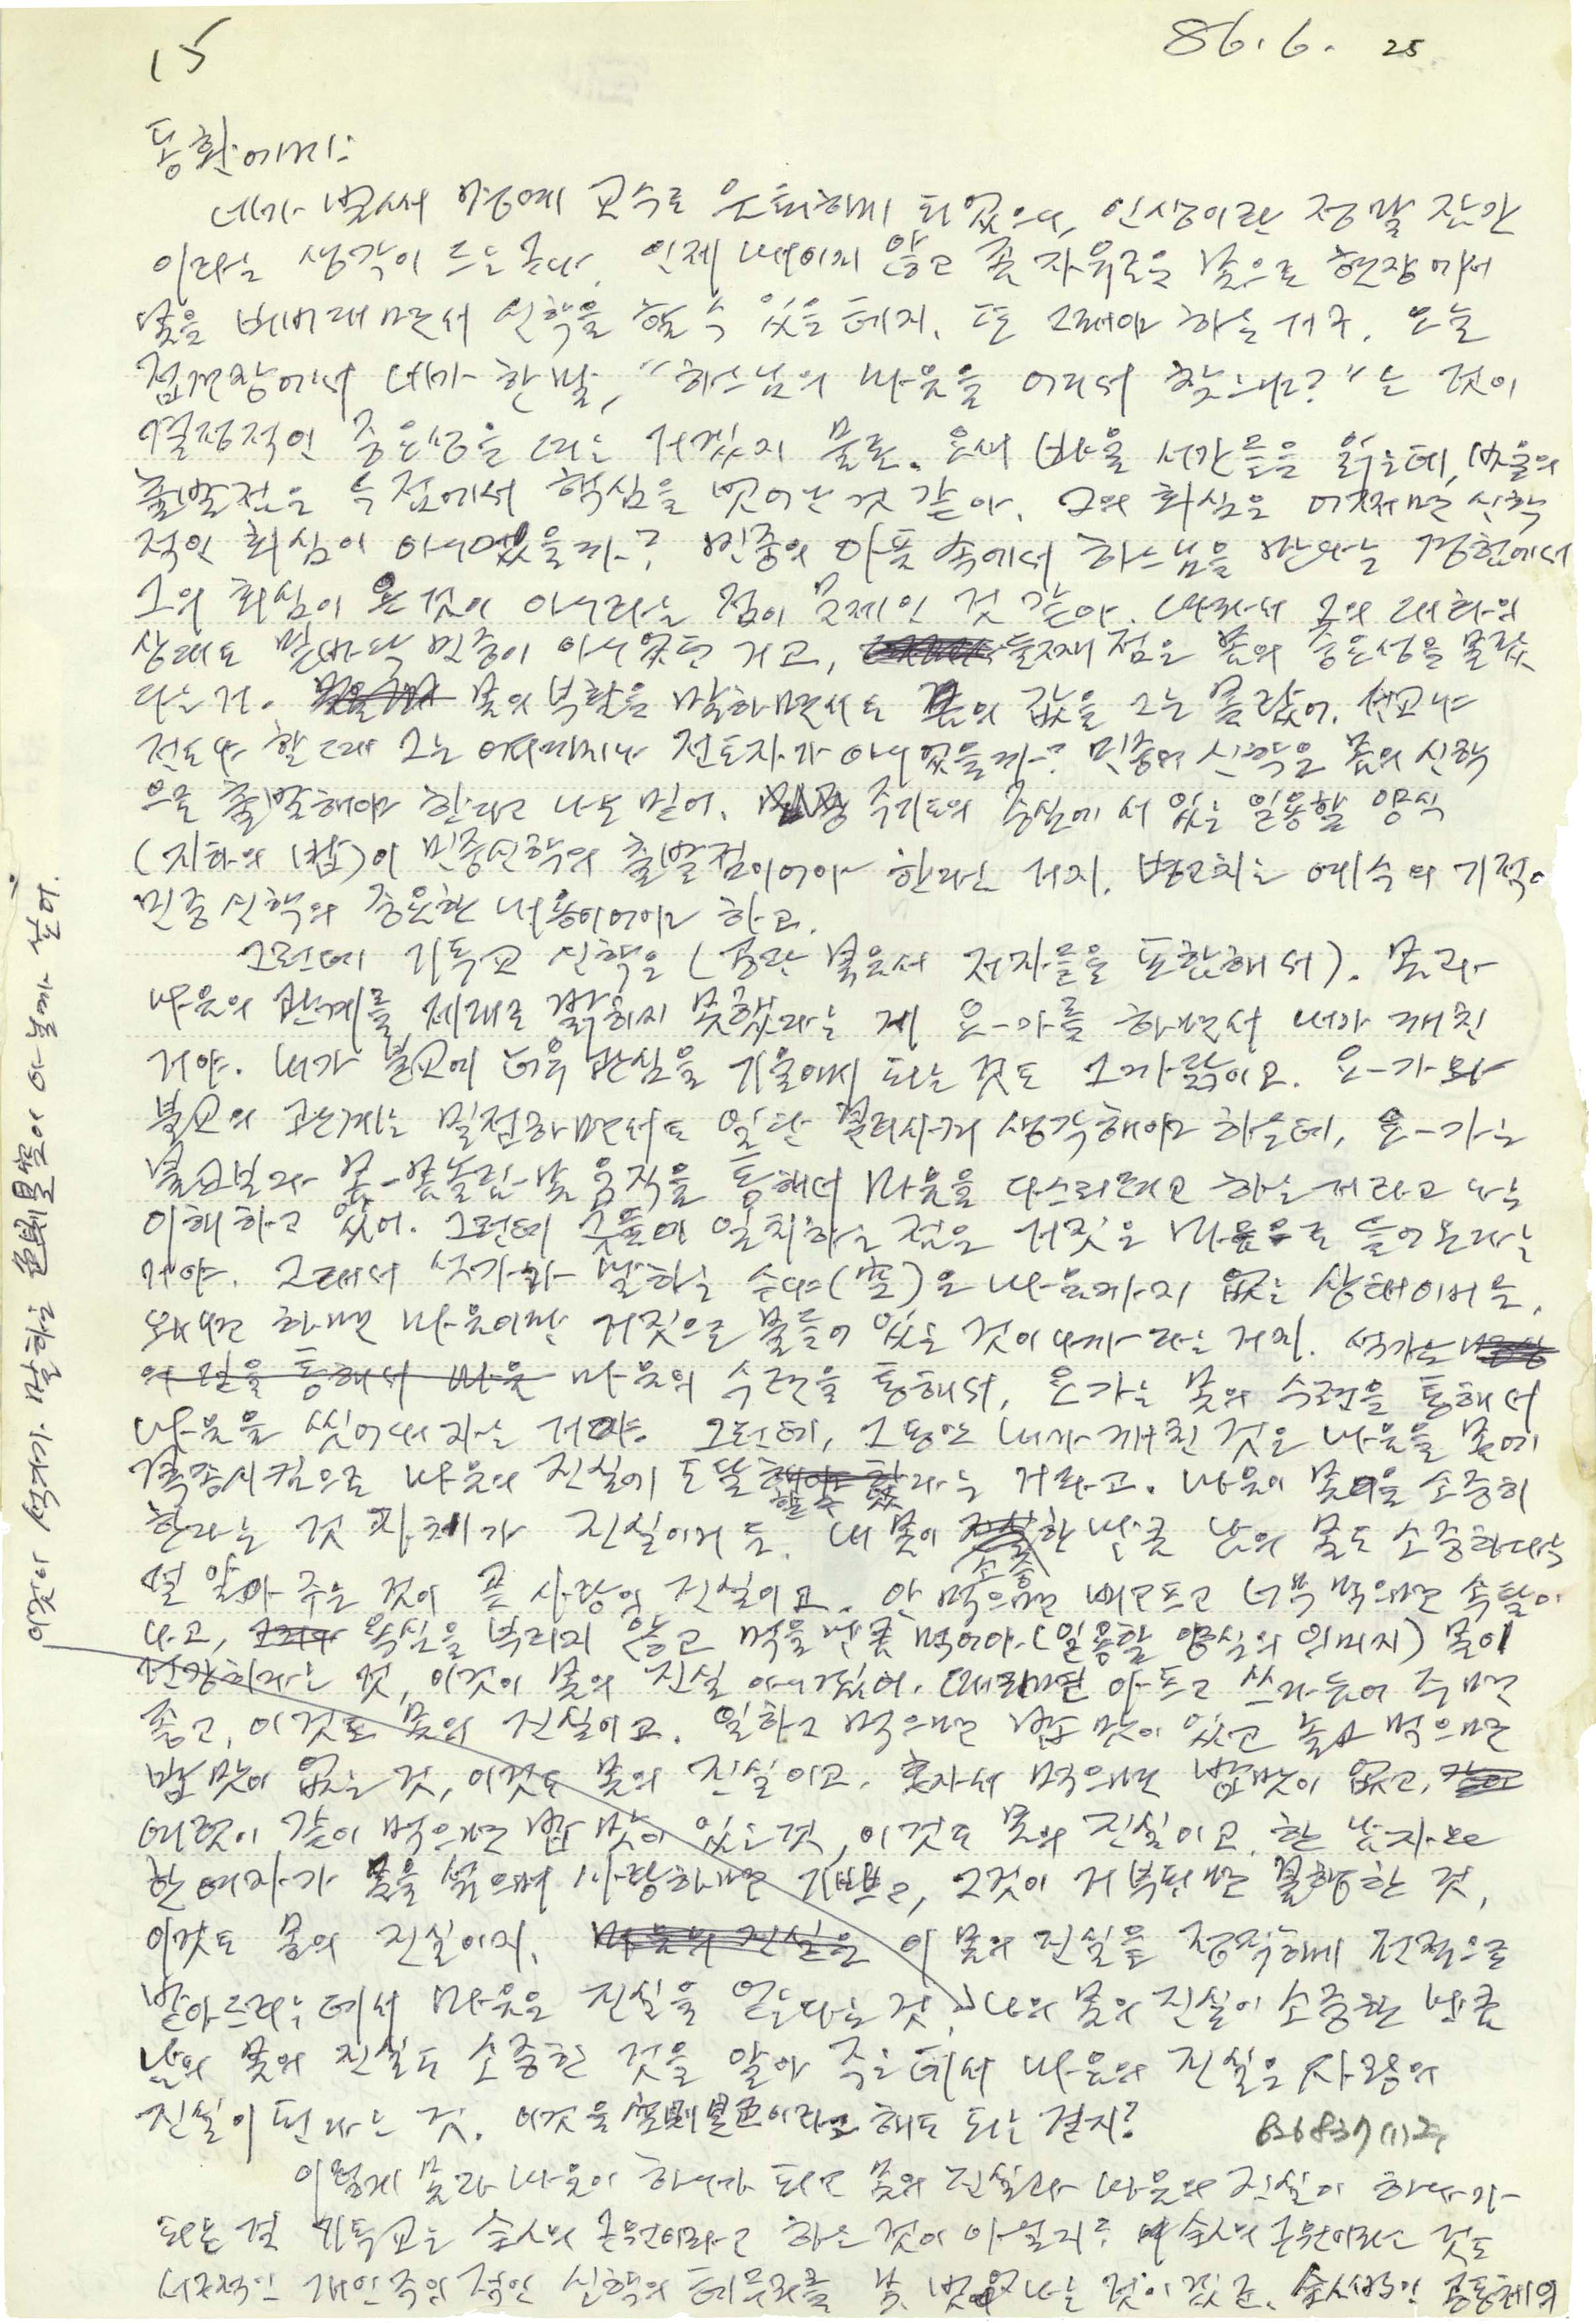 15
86. 6. 25
동환에게:
네가 벌써 명예 교수로 은퇴하게 되었으니, 인생이란 정말 잠간
이라는 생각이 드는구나. 인제 매이지 않고 좀 자유로운 몸으로 현장에서
몸을 비벼대면서 신학을 할 수 있을 테지. 또 그래야 하는 거구. 오늘
접견장에서 네가 한 말, "하느님의 마음을 어디서 찾느냐?"는 것이
결정적인 중요성을 띠는 거겠지 물론. 요새 바울 서간들을 읽는데, 바울의
출발점은 두 점에서 핵심을 벗어난 것 같아. 그의 회심은 어쩌면 신학
적인 회심이 아니었을까? 민중의 아픔 속에서 하느님을 만나는 경험에서
그의 회심이 온 것이 아니라는 점이 문제인 것 같아. 따라서 그의 대화의
상대도 밑바닥 민중이 아니었던 거고, 둘째 점은 몸의 중요성을 몰랐
다는 거. 몸의 부활을 말하면서도 몸의 값을 그는 몰랐어. 선교나
전도나 할 때 그는 어디까지나 전도자가 아니었을까? 민중의 신학은 몸의 신학
으로 출발해야 한다고 나도 믿어. 주기도의 중심에 서 있는 일용할 양식
(지하의 밥)이 민중신학의 출발점이어야 한다는 거지. 병고치는 예수의 기적이
민중신학의 중요한 내용이어야 하고.
그런데 기독교 신학은 (공관 복음서 저자들을 포함해서). 몸과
마음의 관계를 제대로 밝히지 못했다는 게 요-가를 하면서 내가 깨친
거야. 내가 불교에 더욱 관심을 기울이게 되는 것도 그 까닭이고. 요-가와
불교의 관계는 밀접하면서도 일단 분리시켜 생각해야 하는데, 요-가는
불교보다 몸-몸놀림-몸 움직을 통해서 마음을 다스리려고 하는 거라고 나는
이해하고 있어. 그런데 그 둘이 일치하는 점은 거짓은 마음으로 들어온다는
거야. 그래서 석가가 말하는 순야(空)은 마음까지 없는 상태이거든.
왜냐 하면 마음이란 거짓으로 물들어 있는 것이니까 라는 거지. 석가는
마음의 수련을 통해서, 요가는 몸의 수련을 통해서
마음을 씻어내자는 거야. 그런데, 그동안 내가 깨친 것은 마음을 몸에
집중시킴으로 마음의 진실에 도달할 수 있다는 거라고. 마음이 몸을 소중히
한다는 것 자체가 진실이거든. 내 몸이 소중한 만큼 남의 몸도 소중하다는
걸 알아 주는 것이 곧 사랑의 진실이고. 안 먹으면 배고프고 너무 먹으면 속탈이
나고, 욕심을 부리지 않고 먹을 만큼 먹어야 (일용할 양식의 의미지) 몸이
건강하다는 것, 이것이 몸의 진실 아니겠어. 때리면 아프고 쓰다듬어 주면
좋고, 이것도 몸의 진실이고. 일하고 먹으면 밥 맛이 있고 놀고 먹으면
밥 맛이 없는 것, 이것도 몸의 진실이고. 혼자서 먹으면 밥맛이 없고,
여럿이 같이 먹으면 밥 맛이 있는 것, 이것도 몸의 진실이고. 한 남자와
한 여자가 몸을 섞으며 사랑하면 기쁘고, 그것이 거부되면 불행한 것,
이것도 몸의 진실이지. 이 몸의 진실을 정직하게 전적으로
받아드리는 데서 마음은 진실을 얻는다는 것. 나의 몸의 진실이 소중한 만큼
남의 몸의 진실도 소중한 것을 알아 주는 데서 마음의 진실은 사랑의
진실이 된다는 것. 이것을 空則是色이라고 해도 되는 걸지?
이렇게 몸과 마음이 하나가 되고 몸의 진실과 마음의 진실이 하나가
되는 걸 기독교는 숨의 근원이라고 하는 것이 아닐지? 숨의 근원이라는 것도
서구적인 개인주의적인 신학의 테두리를 못 벗어나는 것이겠군. 공동체의
이것이 석가가 말하는 色則是空이 아닐까 싶어.
626837(1)2